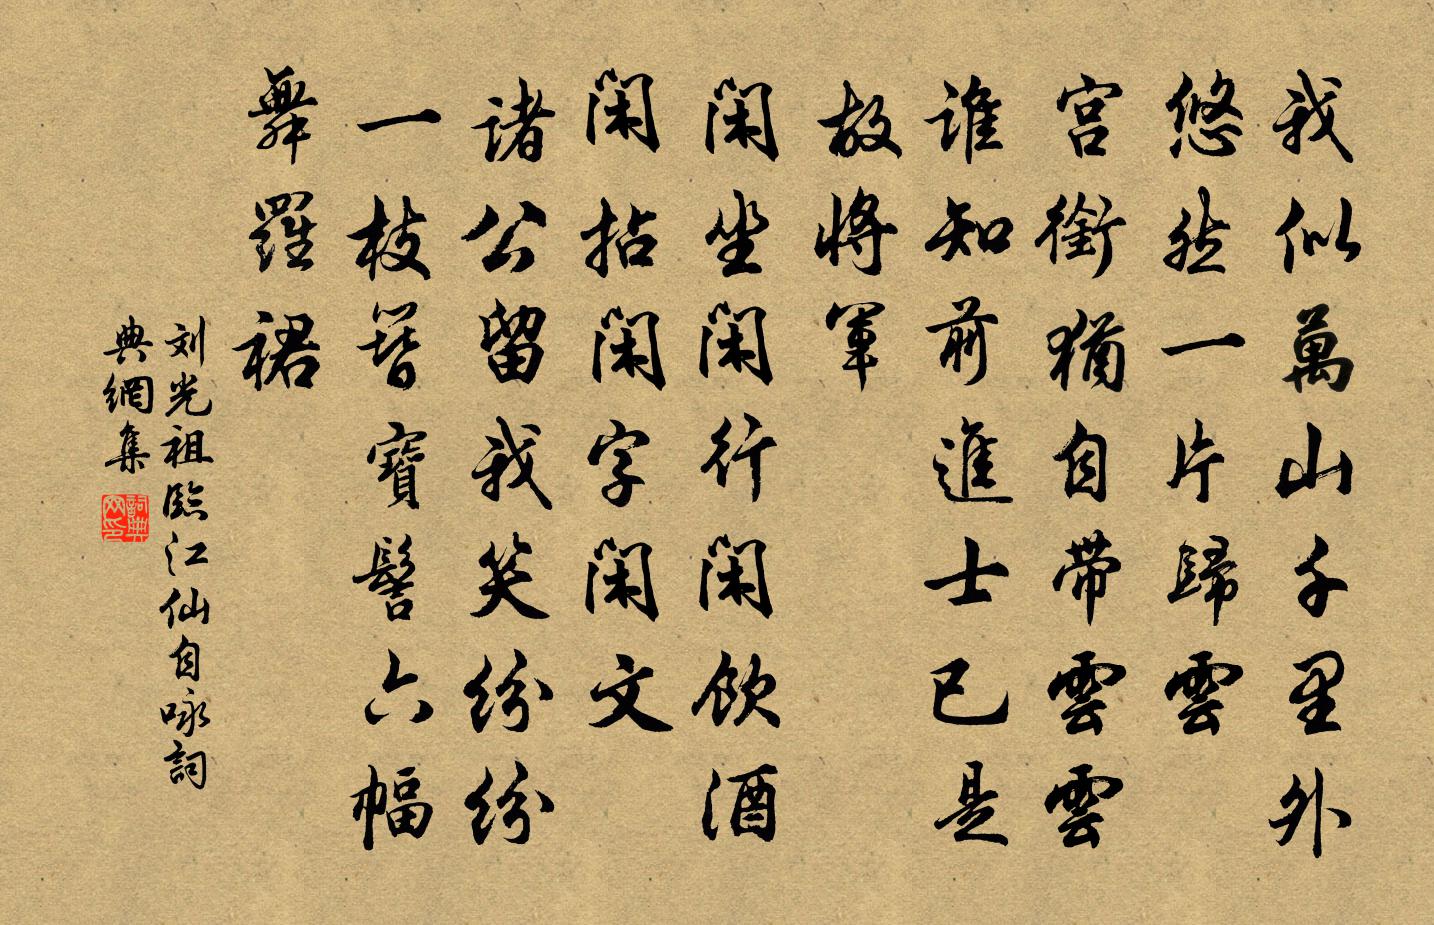 我似萬山千里外
悠然一片歸雲
宫銜猶自带雲雲
誰知前進士已是
故將軍
闲坐闲行闲飲酒
闲拈闲字闲文
諸公留我笑紛紛
一枝簪寶髻六幅
舞羅裙
刘光祖臨江仙自咏詞
典網集
詞典
网印